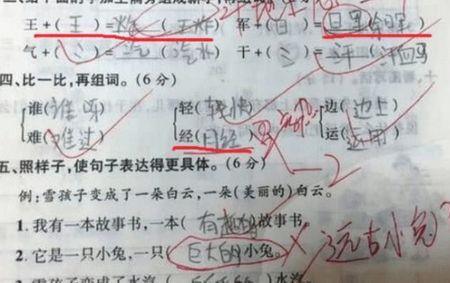 王+(王)=炸(王炸) 军+(日)=
气+(氵)=汽(汽水) 干+(氵)=汗(汗血马)
四、比一比,再组词。(6分)
谁(谁呀) 轻(轻快) 边(边上)
难(难过) 经(日经) 运(运用)
-2
五、照样子,使句子表达得更具体。(6分)
例:雪孩子变成了一朵白云,一朵(美丽的)白云。
1.我有一本故事书,一本(有趣的)故事书。
2.它是一只小兔,一只(巨大的)小兔。 远古小兔?
3.雪孩子变成了水汽, 水汽